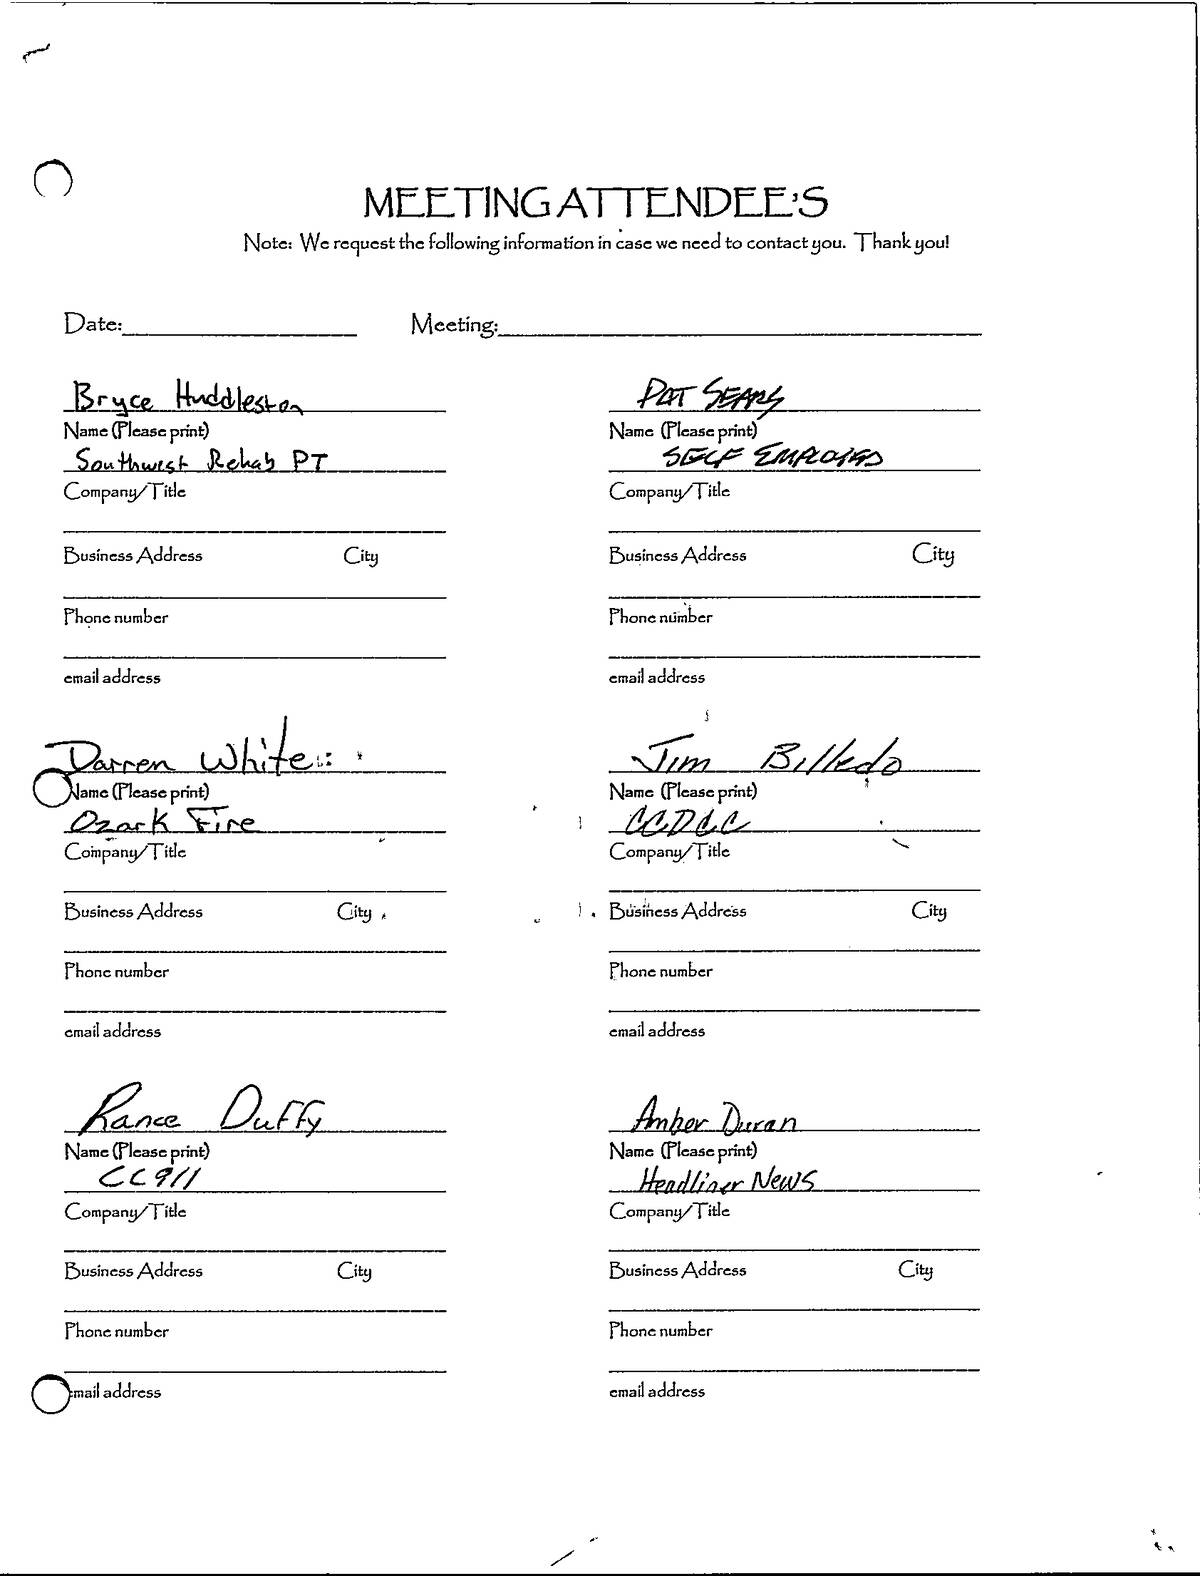 MEETING ATTENDEE'S
Note: We request the following information in case we need to contact you. Thank you!
Date: Meeting:
Bryce Huddleston
Name (Please print)
Southwest Rehab PT
Company/Title
Business Address City
Phone number
email address
PAT SEARS
Name (Please print)
SELF EMPLOYED
Company/Title
Business Address City
Phone number
email address
Darren White
Name (Please print)
Ozark Fire
Company/Title
Business Address City
Phone number
email address
Jim Billedo
Name (Please print)
CCDCC
Company/Title
Business Address City
Phone number
email address
Rance Duffy
Name (Please print)
CC911
Company/Title
Business Address City
Phone number
email address
Amber Duran
Name (Please print)
Headliner News
Company/Title
Business Address City
Phone number
email address